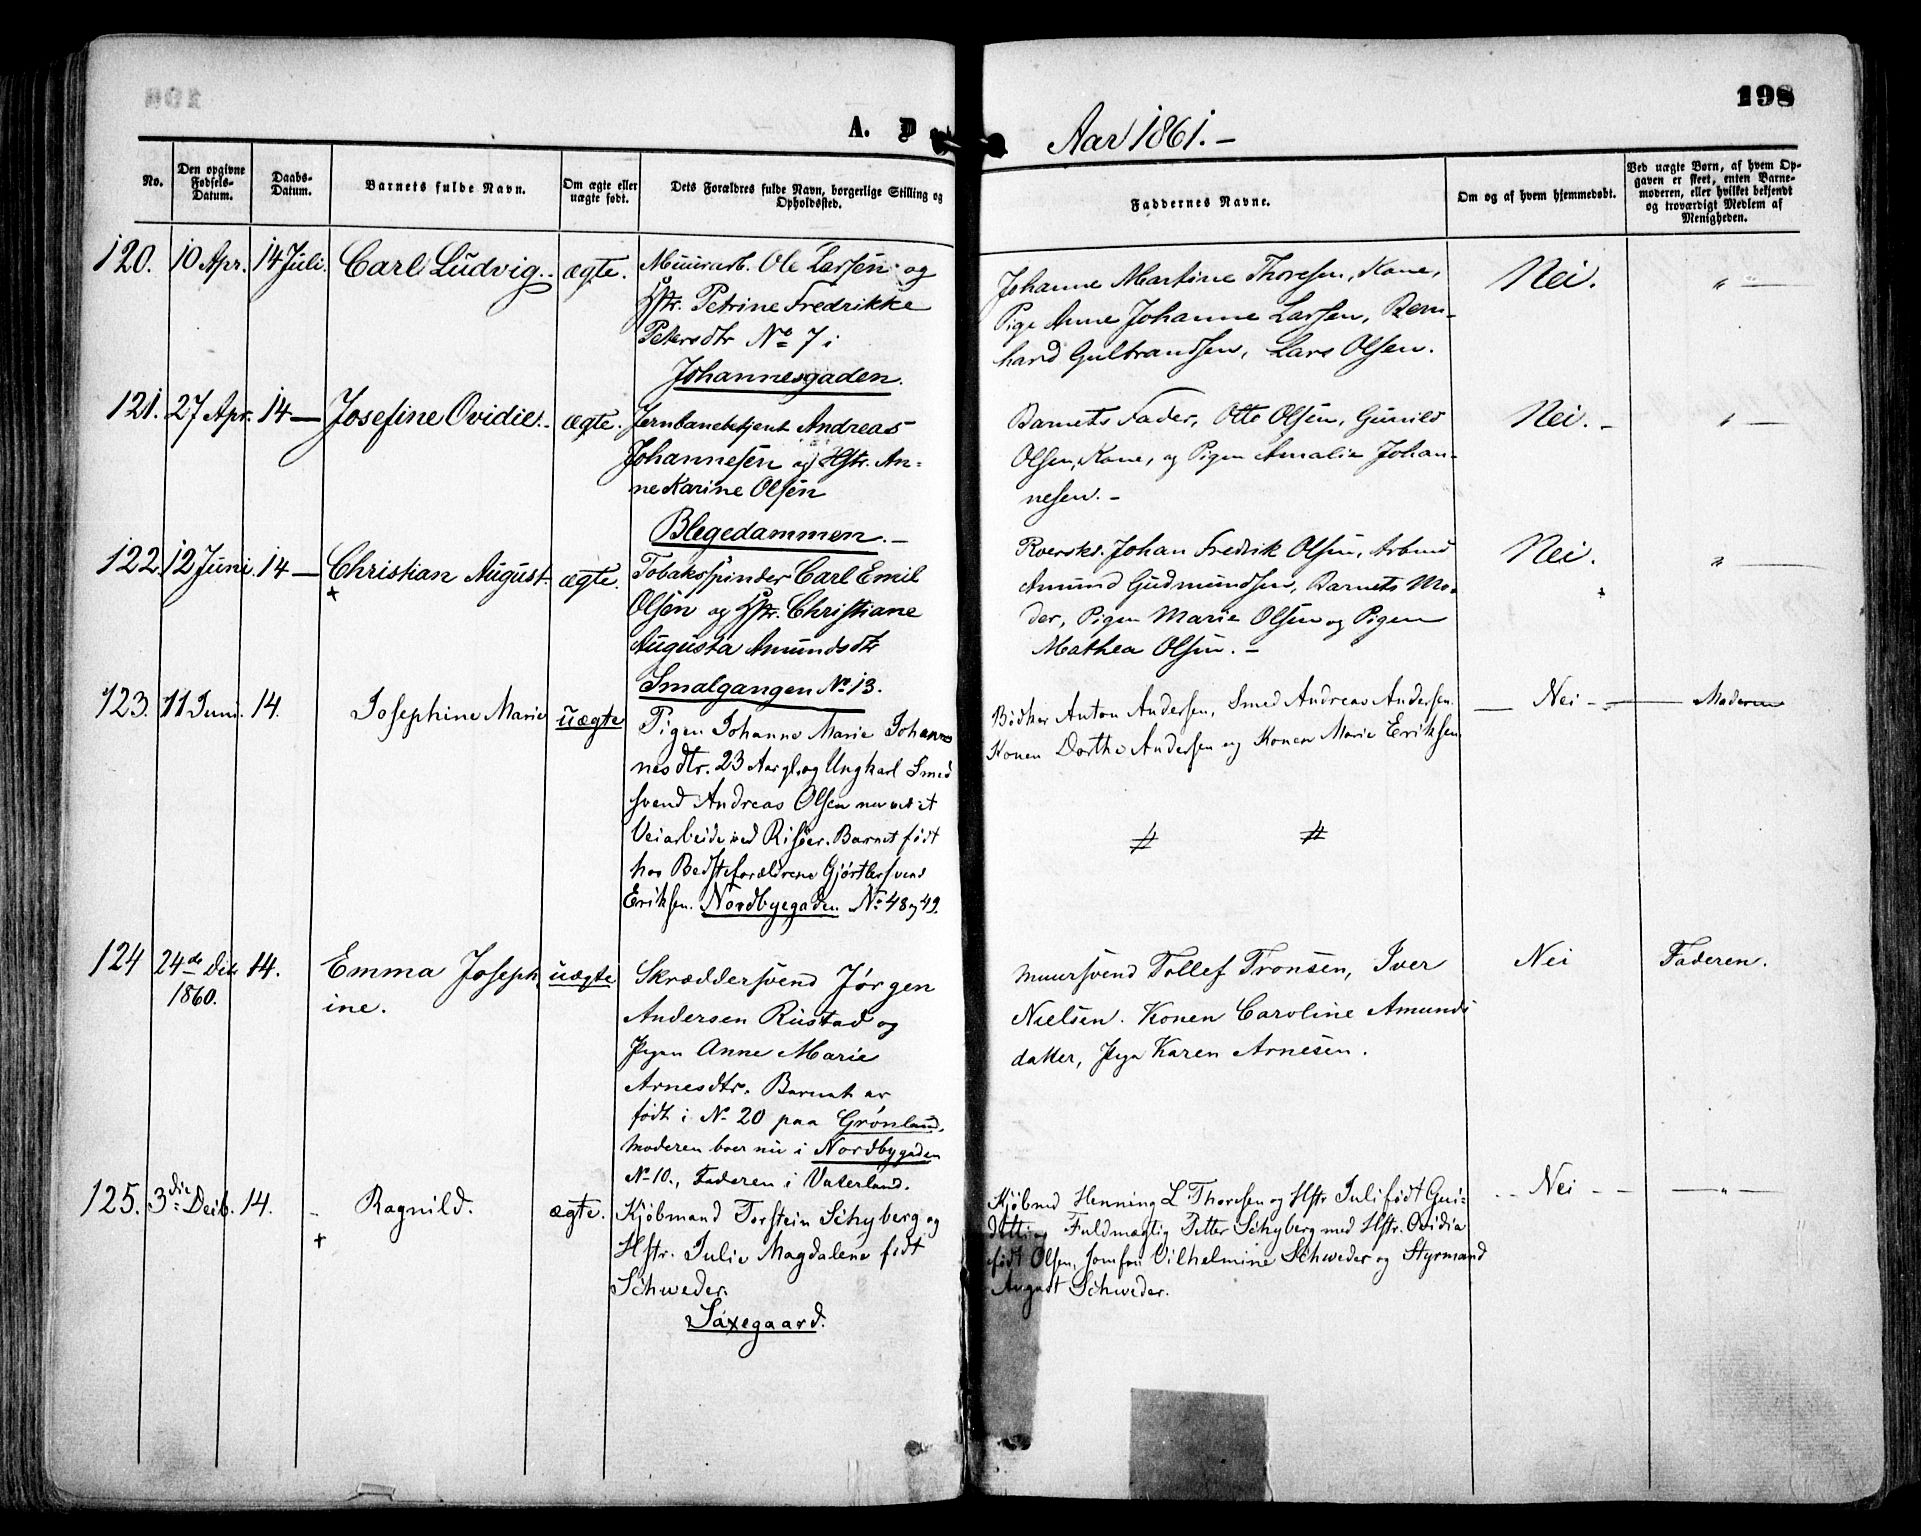 198
A. D
Aar 1861.-
No.
Den opgivne Fødsels-Datum.
Daabs-Datum.
Barnets fulde Navn.
Om ægte eller uægte født.
Dets Forældres fulde Navn, borgerlige Stilling og Opholdssted.
Faddernes Navne.
Om og af hvem hjemmedøbt.
Ved uægte Børn, af hvem Opgaven er skeet, enten Barnemoderen, eller hvilket bekjendt og troværdigt Medlem af Menigheden.
120. 10 Apr. 14 Juli. Carl Ludvig. ægte.
Muurarb. Ole Larsen og
Hstr. Petrine Fredrikke
Petersdtr No 7 i
Johannesgaden.
Johanne Martine Thoresen, Kone,
Pige Anne Johanne Larsen, Bern-
hard Gulbrandsen, Lars Olsen.
Nei. "
121. 27 Apr. 14 — Josefine Ovidie. ægte.
Jernbanebetjent Andreas
Johannesen og Hstr. An-
ne Karine Olsen
Blegedammen.-
Barnets Fader, Otte Olsen, Gunild
Olsen, Kone, og Pigen Amalie Johan-
nesen.-
Nei.- "
122. 12 Juni 14 — Christian August. ægte.
+
Tobaksspinder Carl Emil
Olsen og Hstr. Christiane
Augusta Amundsdtr
Smalgangen No 13.
Johan Fredrik Olsen, Arbmd
Amund Gudmundsen, Barnets Mo-
der, Pigen Marie Olsen og Pigen
Mathea Olsen.-
Nei. "
123. 11 Juni. 14. Josephine Marie uægte
Pigen Johanne Marie Johan
nesdtr. 23 Aar gl. og Ungkarl Smed
svend Andreas Olsen nu ved et
Veiarbeide ved Risøer. Barnet født
hos Bedsteforældrene Gjørtlersvend
Eriksen. Nordbyegaden No 48 og 49.
Bødker Anton Andersen, Smed Andreas Andersen.
Konen Dorthe Andersen og Konen Marie Eriksen
Nei - Moderen
124 24de Dec 14. Emma Joseph uægte
1860. ine.
Skræddersvend Jørgen
Andersen Rustad og
Pigen Anne Marie
Arnesdtr. Barnet er
født i No 20 paa Grønland,
Moderen boer nu i Nordbygaden
No 10., Faderen i Vaterland.
Muursvend Tollef Tronsen, Iver
Nielsen. Konen Caroline Amunds
datter, Pige Karen Arnesen.
Nei Faderen.
125. 3die Decb. 14. - Ragnild. ægte.
+
Kjøbmand Torstein Schyberg og
Hstr. Julie Magdalene født
Schweder.
Saxegaard.
Kjøbmd Henning L Thoresen og Hstr Juli født Gui-
detti og Fuldmægtig Petter Schyberg med Hstr. Ovidia
født Olsen, Jomfru Vilhelmine Schweder og Styrmand
August Schweder.
-- Nei -- — " —